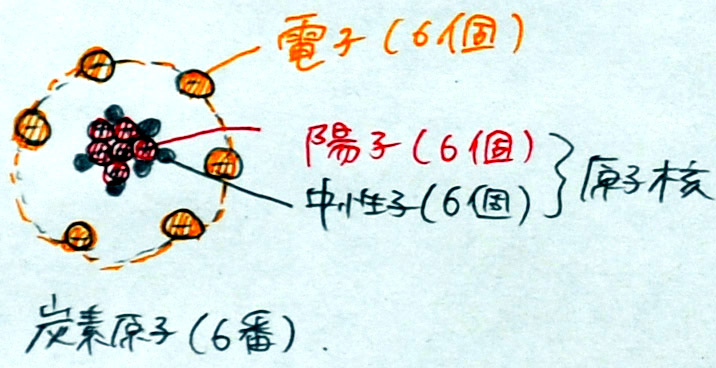 電子(6個)
陽子(6個)
中性子(6個)
原子核
炭素原子(6番)